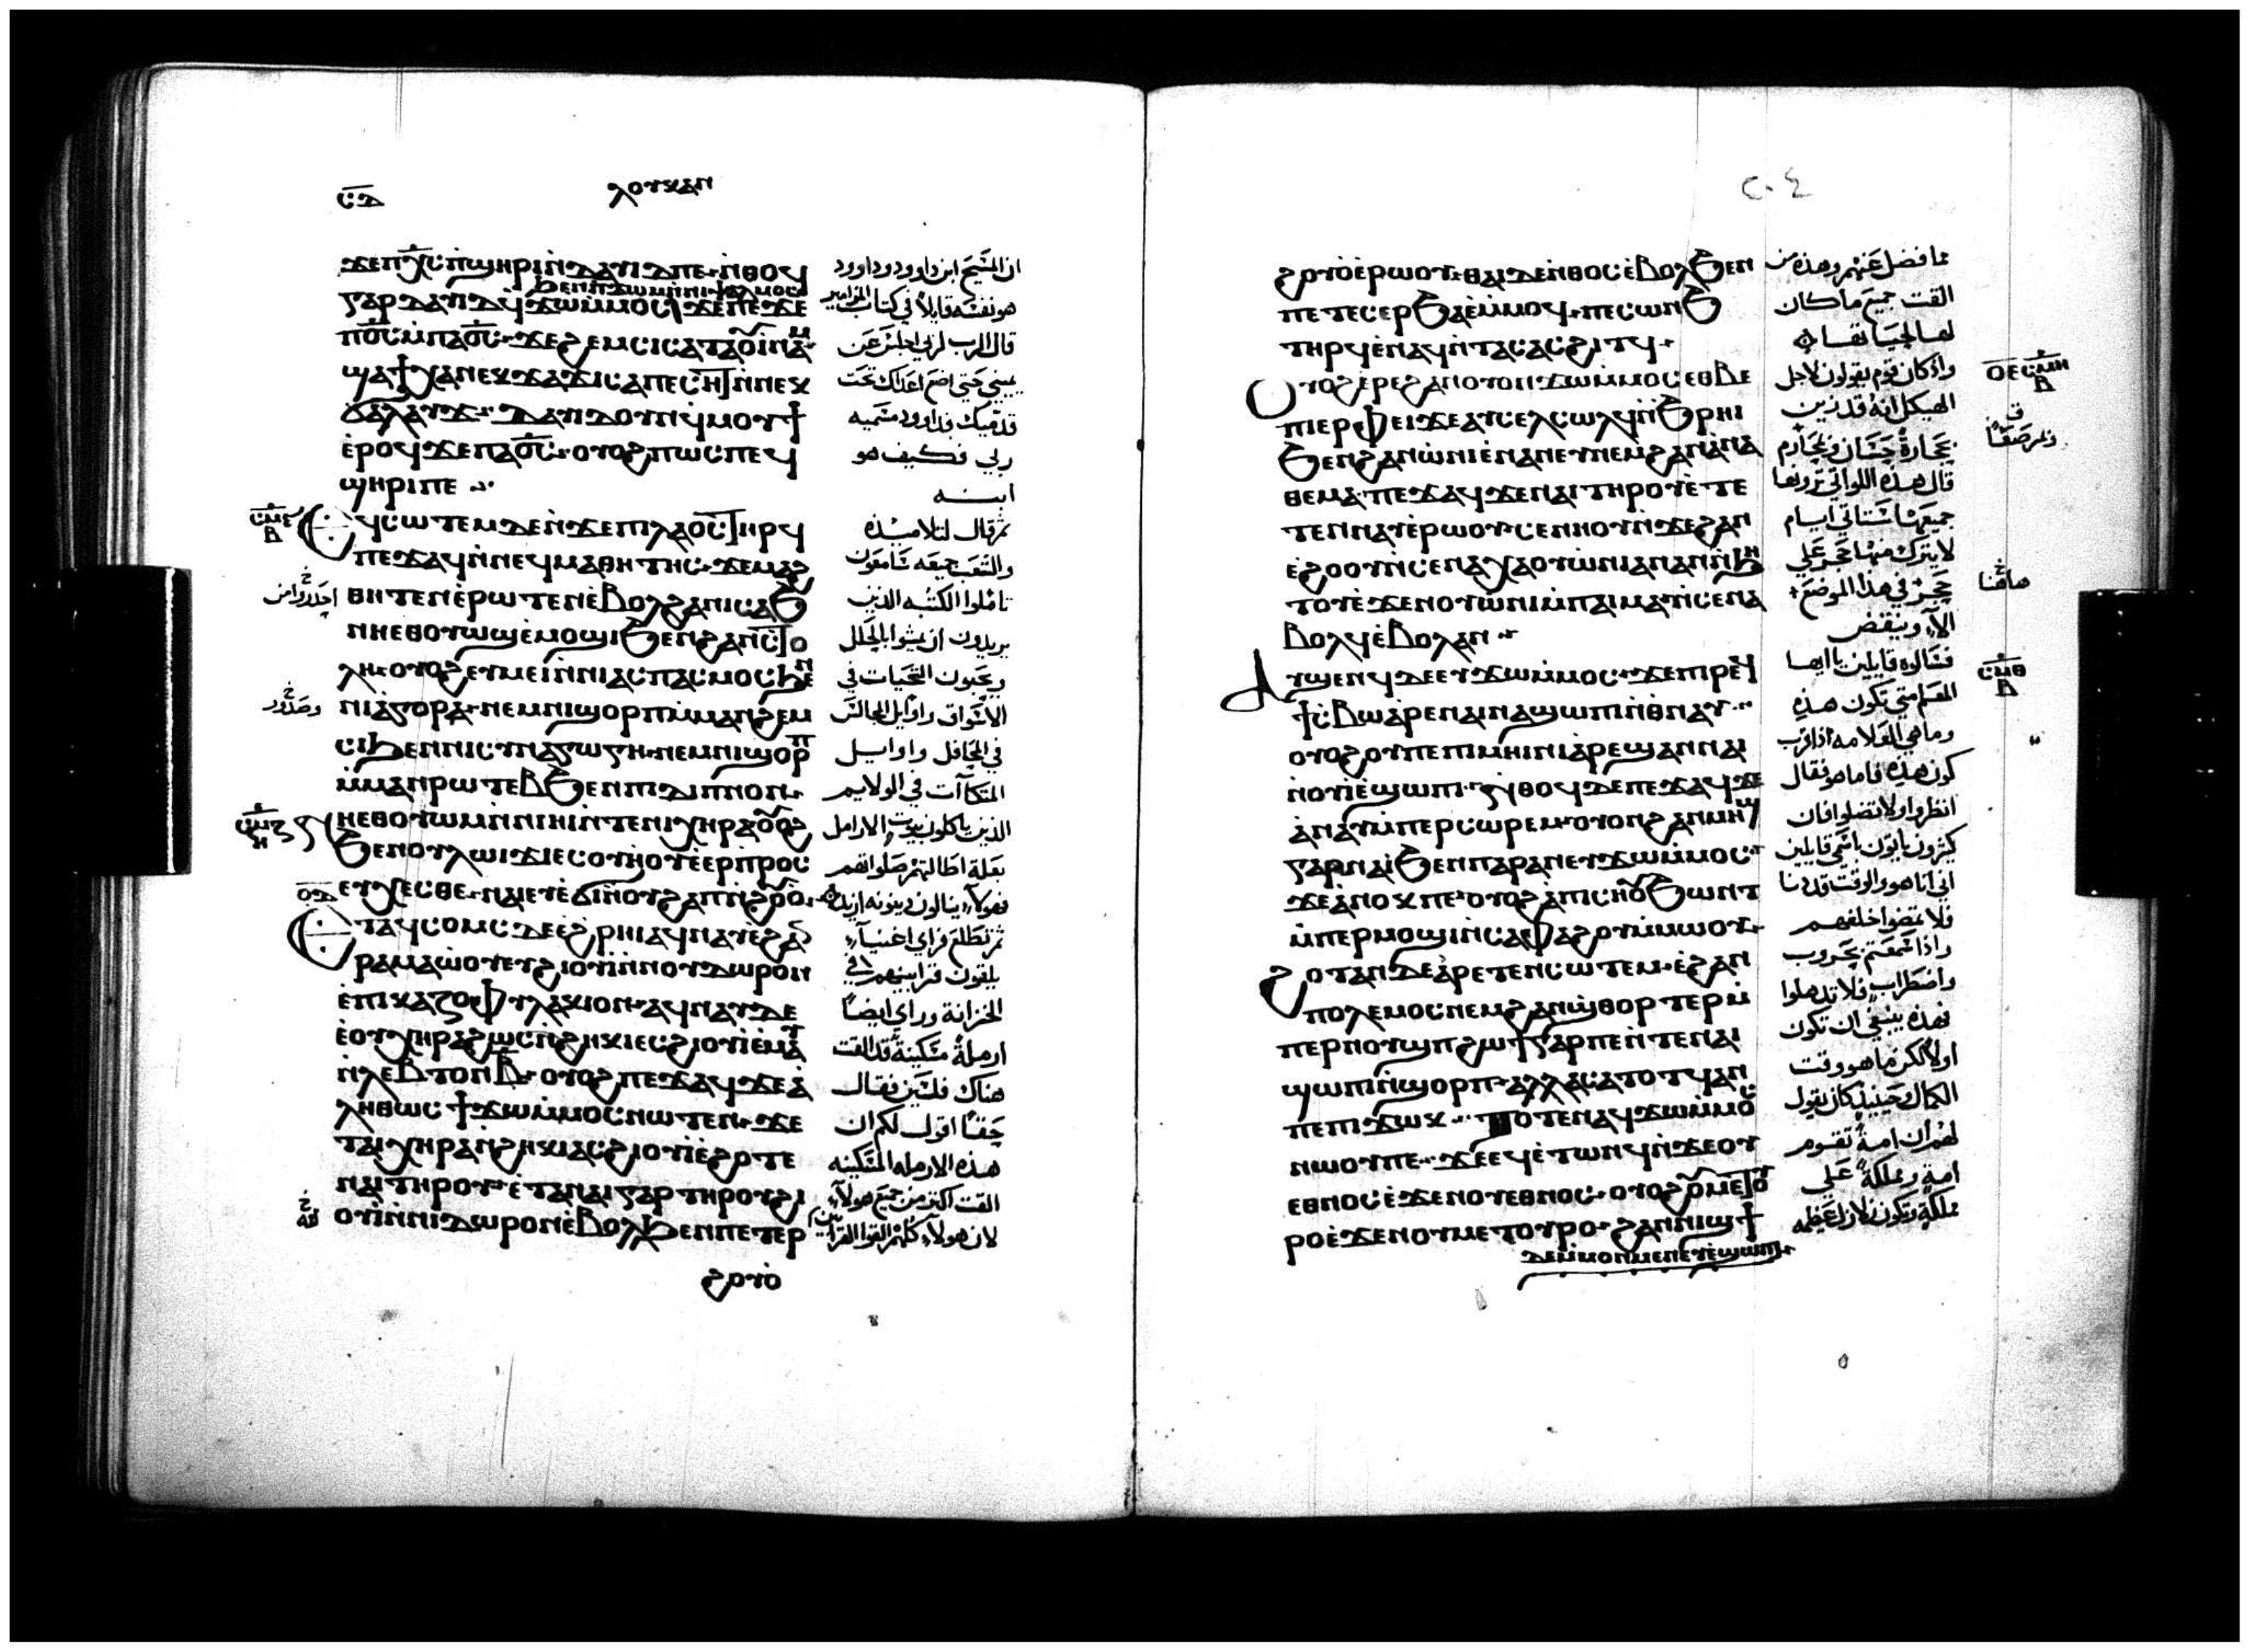 ⲥⲇ
ⲗⲟⲩⲕⲁⲛ
ϫⲉⲡⲭ̅ⲥ̅ⲡϣⲏⲣⲓⲛ̀ⲇⲁⲩⲓⲇⲡⲉ· ⲛ̀ⲑⲟϥ
ϧⲉⲛⲡϫⲱⲙⲛ̀ⲛⲓⲯⲁⲗⲙⲟⲥ
ⲅⲁⲣ ⲇⲁⲩⲓⲇϥ̀ϫⲱⲙ̀ⲙⲟⲥ ϫⲉⲡⲉϫⲉ
ⲡ⳪ⲙ̀ⲡⲁ⳪· ϫⲉϩⲉⲙⲥⲓⲥⲁⲧⲁⲟⲩⲓ̀ⲛⲁⲙ
ϣⲁϯⲭⲁⲛⲉⲕϫⲁϫⲓⲥⲁⲡⲉⲥⲏⲧⲛ̀ⲛⲉⲕ
ϭⲁⲗⲁⲩϫ· ⲇⲁⲩⲓⲇⲟⲩⲛϥ̀ⲙⲟⲩϯ
ⲉ̀ⲣⲟϥϫⲉⲡⲁ⳪· ⲟⲩⲟϩⲡⲱⲥⲡⲉϥ
ϣⲏⲣⲓⲡⲉ
ⲉϥⲥⲱⲧⲉⲙⲇⲉⲛ̀ϫⲉⲡⲓⲗⲁⲟⲥⲧⲏⲣϥ
ⲡⲉϫⲁϥⲛ̀ⲛⲉϥⲙⲁⲑⲏⲧⲏⲥ· ϫⲉⲙⲁϩ
ⲑⲏⲧⲉⲛⲉ̀ⲣⲱⲧⲉⲛⲉ̀ⲃⲟⲗϩⲁⲛⲓⲥⲁϧ
ⲛⲏⲉⲑⲟⲩⲱϣⲉ̀ⲙⲟϣⲓϧⲉⲛϩⲁⲛⲥⲧⲟ
ⲗⲏ· ⲟⲩⲟϩⲉⲩⲙⲉⲓⲛ̀ⲛⲓⲁⲥⲡⲁⲥⲙⲟⲥϧⲉⲛ
ⲛⲓⲁ̀ⲅⲟⲣⲁ· ⲛⲉⲙⲛⲓϣⲟⲣⲡⲙ̀ⲙⲁⲛϩⲉⲙ
ⲥⲓϧⲉⲛⲛⲓⲥⲩⲛⲁⲅⲱⲅⲏ· ⲛⲉⲙⲛⲓϣⲟⲣⲡ
ⲙ̀ⲙⲁⲛⲣⲱⲧⲉⲃϧⲉⲛⲡⲓⲇⲓⲡⲛⲟⲛ·
ⲛⲏⲉⲑⲟⲩⲱⲙⲛ̀ⲛⲓⲏⲓⲛ̀ⲧⲉⲛⲓⲭⲏⲣⲁⲟⲩⲟϩ
ϧⲉⲛⲟⲩⲗⲱⲓϫⲓⲉⲥⲟⲩⲏⲟⲩⲉ̀ⲉⲣⲡⲣⲟⲥ
ⲉⲩⲭⲉⲥⲑⲉ· ⲛⲁⲓⲉⲩⲉ̀ϭⲓⲛ̀ⲟⲩϩⲁⲡⲛ̀ϩⲟⲩⲟ̀·
ⲉⲧⲁϥⲥⲟⲙⲥⲇⲉⲉ̀ϩⲣⲏⲓⲁϥⲛⲁⲩⲉ̀ϩⲁⲛ
ⲣⲁⲙⲁⲱ̀ⲟⲩⲉⲩϩⲓⲟⲩⲓⲛ̀ⲛⲟⲩⲇⲱⲣⲟⲛ
ⲉ̀ⲡⲓⲕⲁⲍⲟⲫⲩⲗⲁⲕⲓⲟⲛ· ⲁϥⲛⲁⲩⲇⲉ
ⲉ̀ⲟⲩⲭⲏⲣⲁϩⲱⲥⲛ̀ϩⲏⲕⲓⲉⲥϩⲓⲟⲩⲓⲉ̀ⲙⲁⲩ
ⲛ̀ⲗⲉⲡⲧⲟⲛⲃ̅· ⲟⲩⲟϩⲡⲉϫⲁϥϫⲉⲁ̀
ⲗⲏⲑⲱⲥϯϫⲱⲙ̀ⲙⲟⲥⲛⲱⲧⲉⲛ· ϫⲉ
ⲧⲁⲓⲭⲏⲣⲁⲛ̀ϩⲏⲕⲓⲁⲥϩⲓⲟⲩⲓⲉ̀ϩⲟⲧⲉ
ⲛⲁⲓⲧⲏⲣⲟⲩ· ⲉ̀ⲧⲁⲛⲁⲓⲅⲁⲣⲧⲏⲣⲟⲩϩⲓ
ⲟⲩⲓⲛ̀ⲛⲓⲇⲱⲣⲟⲛⲉ̀ⲃⲟⲗϧⲉⲛⲡⲉⲧⲉⲣ
ϩⲟⲩⲟ̀
ان المسيح ابن داوود وداوود
هو نفسه قايلاً في كتاب المزامير
قال الرب لربي اجلس عن
يميني حتي اضع اعداك تحت
قدميك فداوود مسميه
ربي فكيف هو
ابنه
ثم قال لتلاميذه
والشعب جميعه سامعون
تاملوا الكتبه الذين
يريدون ان يمشوا بالحلل
ويحبون التحيات في
الاسواق واوايل المجالس
في المحافل واوايل
المتكاآت في الولايم
الذين ياكلون بيوت الارامل
بعلة اطالتهم صلواتهم
فهولاء ينالون دينونه ازيد
ثم تطلع فراي اغنياء
يلقون قرابينهم في
الخزانة وراي ايضاً
ارملةً مسكينةً قد القت
هناك فلسين فقال
حقاً اقول لكم ان
هذه الارمله المسكينه
القت اكثر من جميع هولاء
لان هولاء كلهم القوا القرابين
احدروا من
وصدور
٢٠٤
ϩⲟⲩⲟ̀ⲉ̀ⲣⲱⲟⲩ· ⲑⲁⲓⲇⲉⲛ̀ⲑⲟⲥⲉ̀ⲃⲟⲗϧⲉⲛ
ⲡⲉⲧⲉⲥⲉⲣϧⲁⲉ̀ⲙ̀ⲙⲟϥ· ⲡⲉⲥⲱⲛϧ
ⲧⲏⲣϥⲉ̀ⲛⲁϥⲛ̀ⲧⲁⲥⲁⲥϩⲓⲧϥ·
ⲟⲩⲟϩⲉⲣⲉϩⲁⲛⲟⲩⲟⲛϫⲱⲙ̀ⲙⲟⲥⲉⲑⲃⲉ
ⲡⲓⲉⲣⲫⲉⲓϫⲉⲁⲩⲥⲉⲗⲥⲱⲗϥⲛ̀ϧⲣⲏⲓ
ϧⲉⲛϩⲁⲛⲱ̀ⲛⲓⲉ̀ⲛⲁⲛⲉⲩⲛⲉⲙϩⲁⲛⲁ̀ⲛⲁ
ⲑⲉⲙⲁ· ⲡⲉϫⲁϥϫⲉⲛⲁⲓⲧⲏⲣⲟⲩⲉ̀ⲧⲉ
ⲧⲉⲛⲛⲁⲩⲉ̀ⲣⲱⲟⲩ· ⲥⲉⲛⲏⲟⲩⲛ̀ϫⲉϩⲁⲛ
ⲉ̀ϩⲟⲟⲩⲛ̀ⲥⲉⲛⲁⲭⲁⲟⲩⲱ̀ⲛⲓⲁⲛⲁⲛⲛ̀ϧⲏ
ⲧⲟⲩⲉ̀ϫⲉⲛⲟⲩⲱ̀ⲛⲓⲙ̀ⲡⲁⲓⲙⲁⲛ̀ⲥⲉⲛⲁ
ⲃⲟⲗϥⲉ̀ⲃⲟⲗⲁⲛ
ⲁⲩϣⲉⲛϥⲇⲉⲉⲩϫⲱⲙ̀ⲙⲟⲥ· ϫⲉⲡⲓⲣⲉϥ
ϯⲥ̀ⲃⲱⲁⲣⲉⲛⲁⲓⲛⲁϣⲱⲡⲓⲛ̀ⲑⲛⲁⲩ
ⲟⲩⲟϩⲟⲩⲡⲉⲡⲓⲙⲏⲓⲛⲓⲁⲣⲉϣⲁⲛⲛⲁⲓ
ⲛⲟⲩⲓⲉ̀ϣⲱⲡⲓ· ⲛ̀ⲑⲟϥⲇⲉⲡⲉϫⲁϥϫⲉ
ⲁⲛⲁⲩⲙ̀ⲡⲉⲣⲥⲱⲣⲉⲙ· ⲟⲩⲟⲛϩⲁⲛⲙⲏϣ
ⲅⲁⲣⲛⲁⲓ̀ϧⲉⲛⲡⲁⲣⲁⲛⲉⲩϫⲱⲙ̀ⲙⲟⲥ·
ϫⲉⲁ̀ⲛⲟⲕⲡⲉ· ⲟⲩⲟϩⲁ̀ⲡⲓⲥⲏⲟⲩϧⲱⲛⲧ
ⲙ̀ⲡⲉⲣⲙⲟϣⲓⲛ̀ⲥⲁⲫⲁϩⲟⲩⲙ̀ⲙⲱⲟⲩ·
ϩⲟⲧⲁⲛⲇⲉⲁ̀ⲣⲉⲧⲉⲛⲥⲱⲧⲉⲙ· ⲉ̀ϩⲁⲛ
ⲡⲟⲗⲉⲙⲟⲥⲛⲉⲙϩⲁⲛϣ̀ⲑⲟⲣⲧⲉⲣⲙ̀
ⲡⲉⲣⲛⲟⲩϣⲡϩⲱϯⲅⲁⲣⲡⲉⲛ̀ⲧⲉⲛⲁⲓ
ϣⲱⲡⲓⲛ̀ϣⲟⲣⲡ· ⲁⲗⲗⲁⲥⲁⲧⲟⲧϥⲁⲛ
ⲡⲉⲡⲓϫⲱⲕ· ⲧⲟⲧⲉⲛⲁϥϫⲱⲙ̀ⲙⲟⲥ
ⲛⲱⲟⲩⲡⲉ· ϫⲉⲉϥⲉ̀ⲧⲱⲛϥⲛ̀ϫⲉⲟⲩ
ⲉⲑⲛⲟⲥⲉ̀ϫⲉⲛⲟⲩⲉⲑⲛⲟⲥ· ⲟⲩⲟϩⲟⲩⲙⲉⲧⲟⲩ
ⲣⲟⲉ̀ϫⲉⲛⲟⲩⲙⲉⲧⲟⲩⲣⲟ· ϩⲁⲛⲛⲓϣϯ
ⲇⲉⲙ̀ⲙⲟⲛⲙⲉⲛⲉⲩⲉ̀ϣⲱⲡⲓ
مما فضل عنهم وهذه من
القت جميع ما كان
لها لحياتها
واذ كان قوم يقولون لاجل
الهيكل انه قد زين
بحجارةٍ حسان ومحارم
قال هذه اللواتي ترونها
جميعها ستاتي ايام
لا يترك منها حجر علي
حجر في هذا الموضع
الا وينقض
فسالوه قايلين يا ايها
المعلم متي تكون هذه
وما هي العلامه اذا قرب
كون هذه فاما هو فقال
انظروا ولا تضلوا فان
كثيرون ياتون باسمي قايلين
اني انا هو والوقت قد دنا
فلا تمضوا خلفهم
واذا سمعتم بحروب
واضطراب فلا تذهلوا
فهذه ينبغي ان تكون
اولاً لكن ما هو وقت
الكمال حينيذ كان يقول
لهم ان امةً تقوم
امةٍ ومملكةً علي
مملكةٍ وتكون زلازل عظيمه
هاهنا